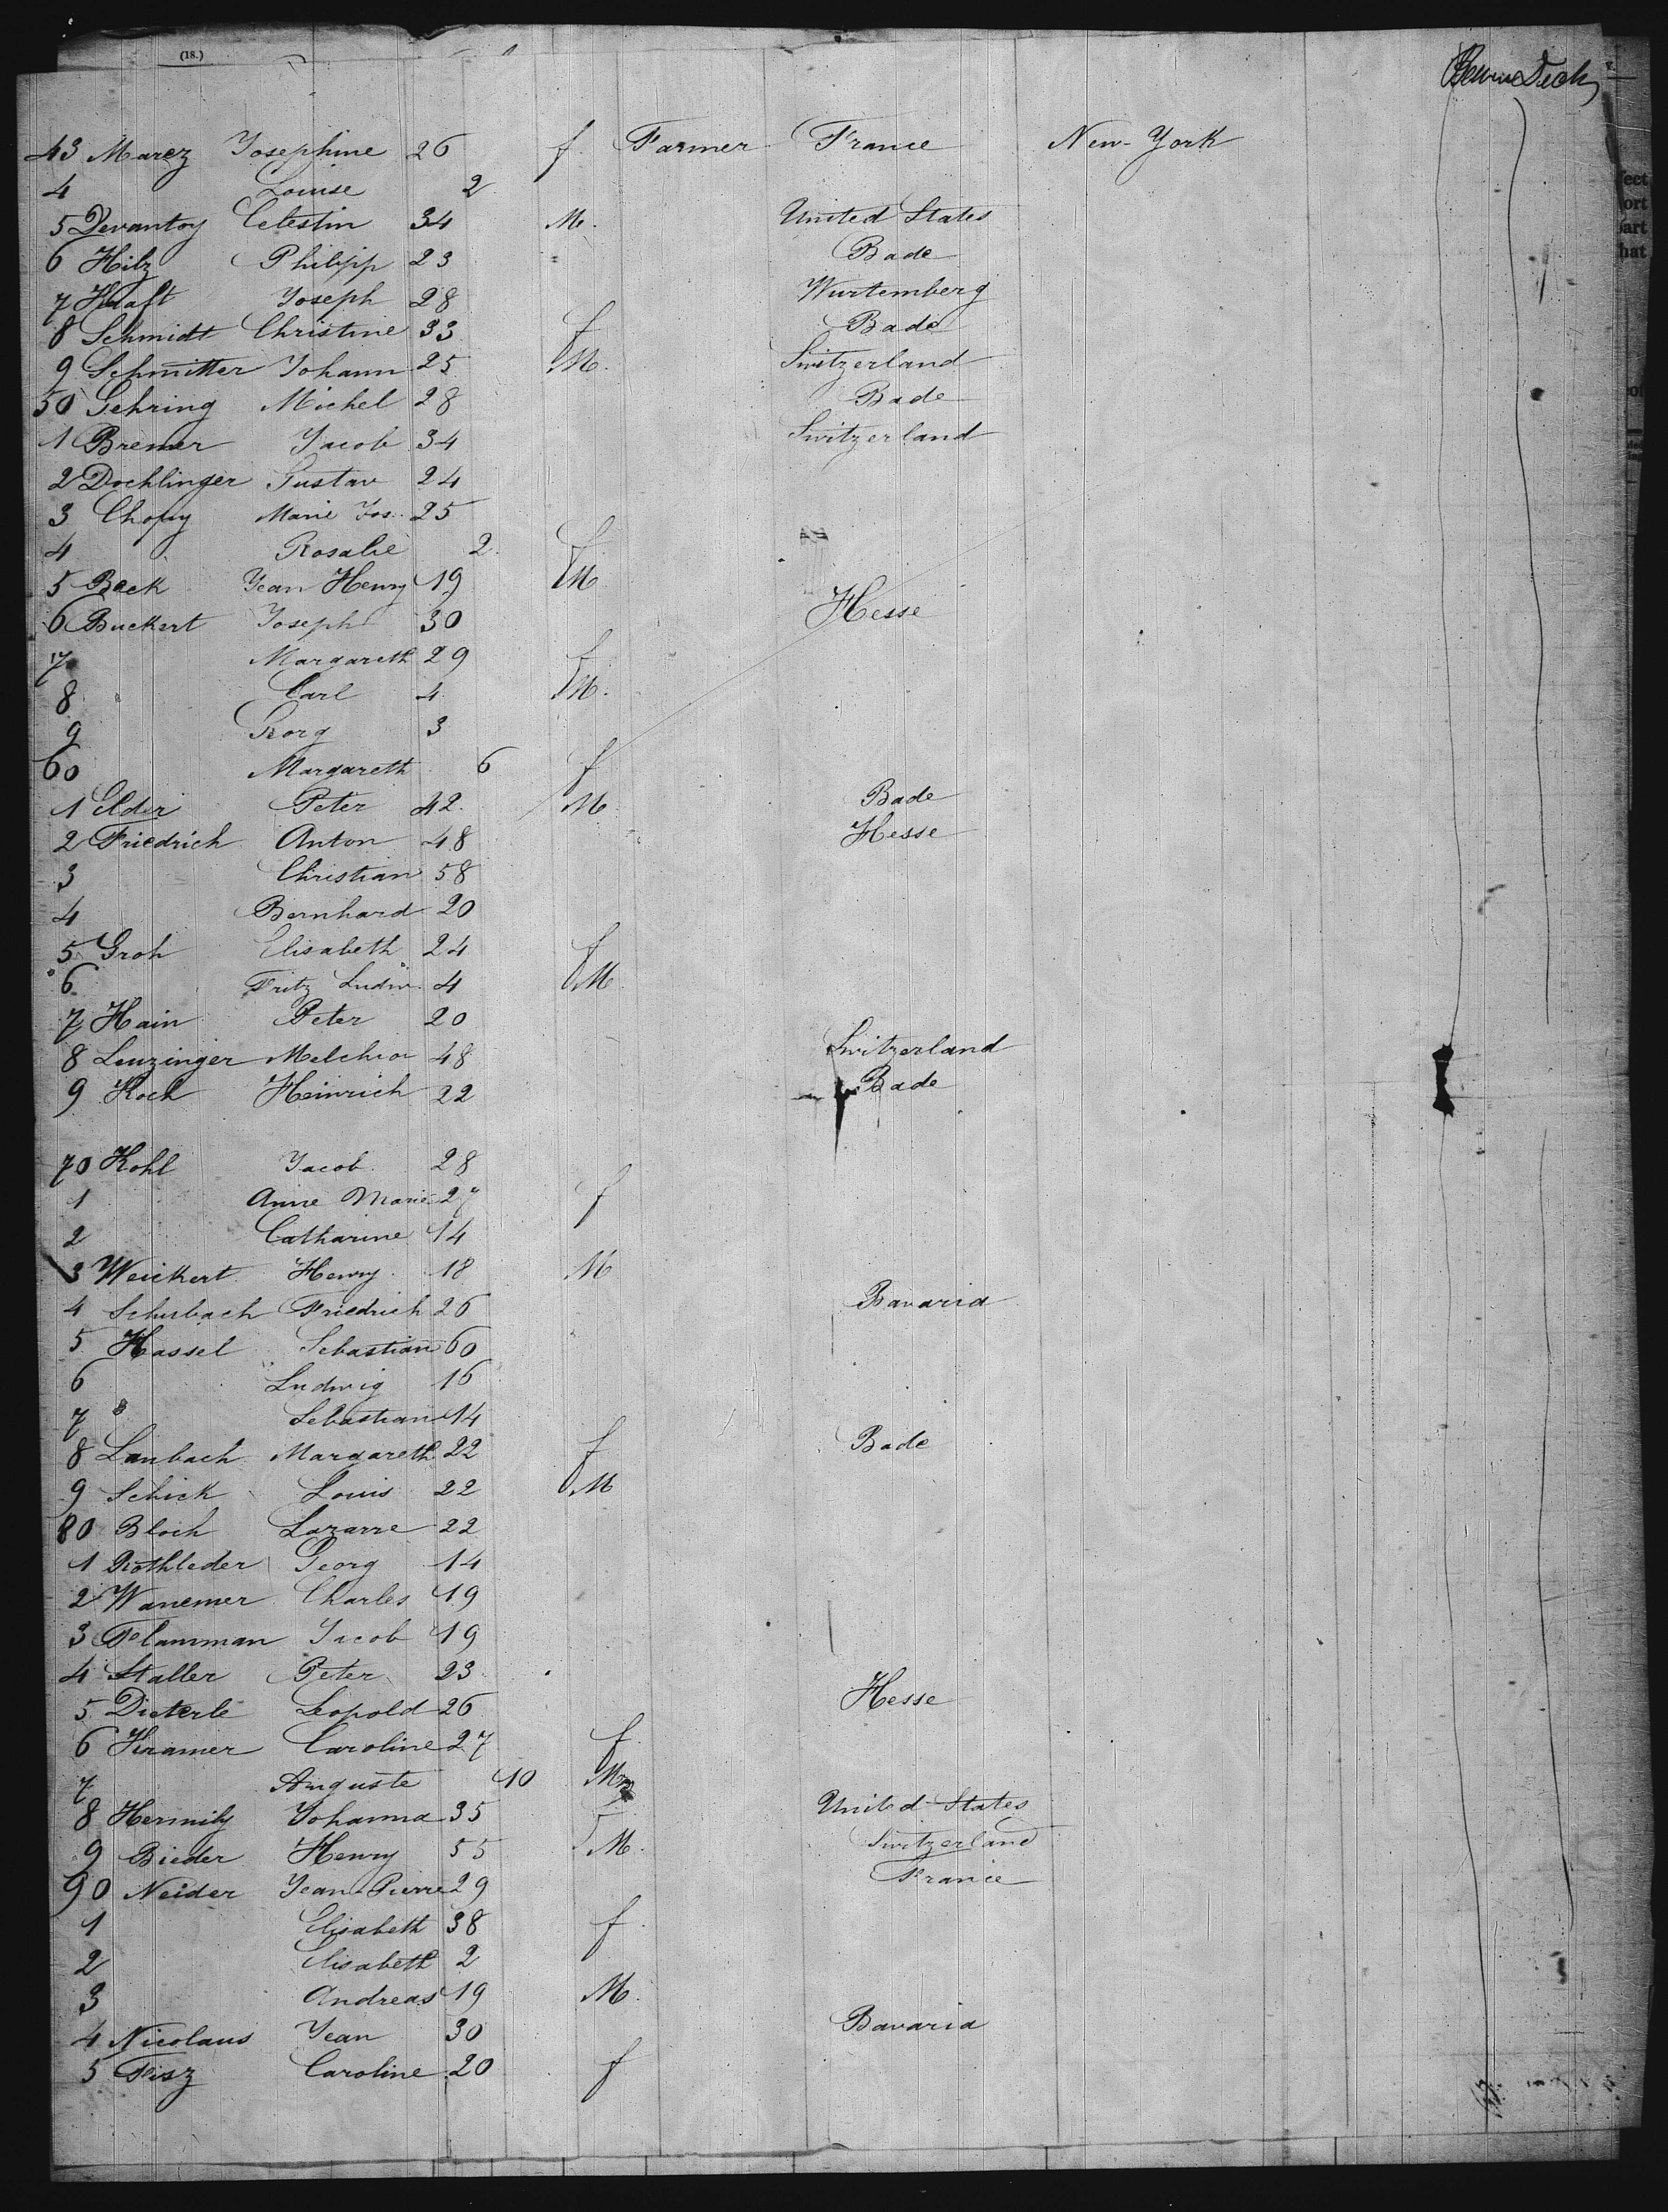 (18.)
Between Deck
43 Marez Josephine 26 f. Farmer France New-York
4 Louise 2
5 Devantoy Celestin 34 M. United States
6 Hilz Philipp 23 Bade
7 Haaft Joseph 28 Wurtemberg
8 Schmidt Christine 33 f Bade
9 Schmitter Johann 25 M. Switzerland
50 Gehring Michel 28 Bade
1 Bremer Jacob 34 Switzerland
2 Dochlinger Gustav 24
3 Chopy Marie Jos. 25
4 Rosalie 2 f
5 Beck Jean Henry 19 M
6 Buckert Joseph 30 Hesse
7 Margareth 29 f
8 Carl 4 M.
9 Georg 3
60 Margareth 6 f
1 Elder Peter 42 M Bade
2 Friedrich Anton 48 Hesse
3 Christian 58
4 Bernhard 20
5 Groh Elisabeth 24 f
6 Fritz Ludw. 4 M
7 Hain Peter 20
8 Leuzinger Melchior 48 Switzerland
9 Koch Heinrich 22 Bade
70 Kohl Jacob 28
1 Anne Marie 27 f
2 Catharine 14
3 Weickert Henry 18 M
4 Schusbach Friedrich 26 Bavaria
5 Hassel Sebastian 60
6 Ludwig 16
7 Sebastian 14
8 Laubach Margareth 22 f Bade
9 Schick Louis 22 M
80 Bloch Lazarre 22
1 Rothleder Georg 14
2 Wanemer Charles 19
3 Flamman Jacob 19
4 Staller Peter 23
5 Dieterle Leopold 26 Hesse
6 Kramer Caroline 27 f
7 Auguste 10 M
8 Hermily Johanna 35 United States
9 Bieder Henry 55 M. Switzerland
90 Neider Jean-Pierre 29 France
1 Elisabeth 38 f
2 Elisabeth 2
3 Andreas 19 M.
4 Nicolaus Jean 30 Bavaria
5 Fisz Caroline 20 f